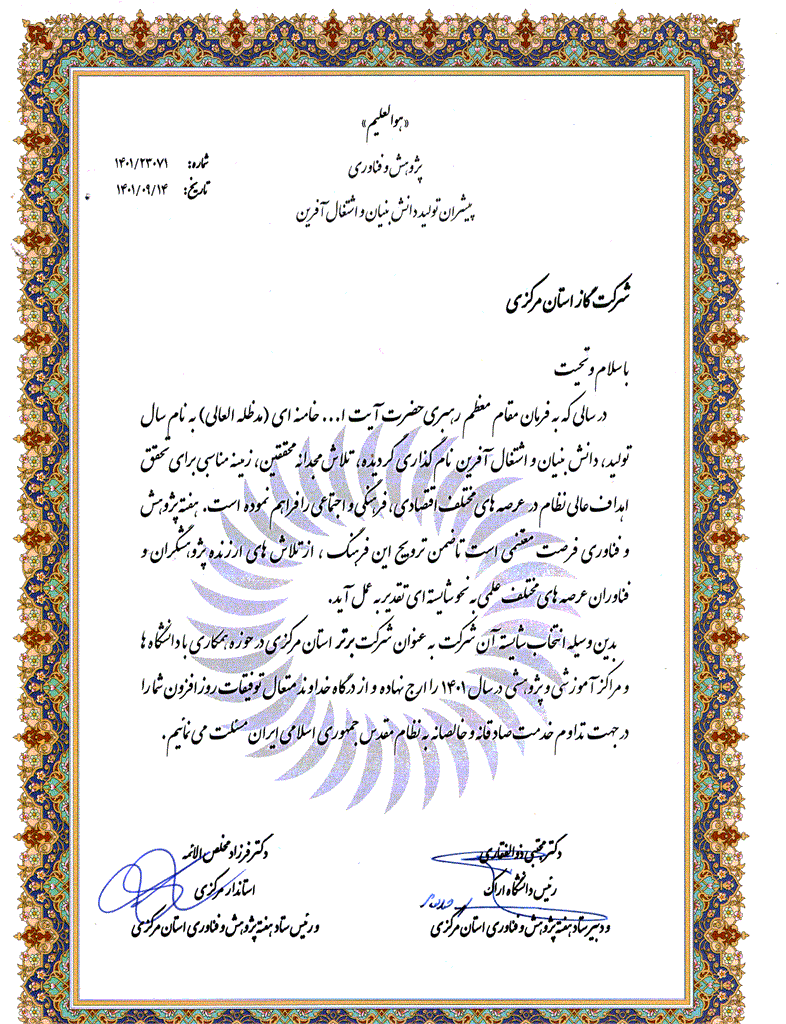 «هوالعلیم»
شماره: ۱۴۰۱/۲۳۰۷۱
پژوهش و فناوری
تاریخ: ۱۴۰۱/۰۹/۱۴
پیشران تولید دانش بنیان و اشتغال آفرین
شرکت گاز استان مرکزی
با سلام و تحیت
در سالی که به فرمان مقام معظم رهبری حضرت آیت ا... خامنه ای (مدظله العالی) به نام سال
تولید، دانش بنیان و اشتغال آفرین نام گذاری گردیده، تلاش مجدانه محققین، زمینه مناسبی برای تحقق
اهداف عالی نظام در عرصه های مختلف اقتصادی، فرهنگی و اجتماعی را فراهم نموده است. هفته پژوهش
و فناوری فرصت مغتنمی است تا ضمن ترویج این فرهنگ، از تلاش های ارزنده پژوهشگران و
فناوران عرصه های مختلف علمی به نحو شایسته ای تقدیر به عمل آید.
بدین وسیله انتخاب شایسته آن شرکت به عنوان شرکت برتر استان مرکزی در حوزه همکاری با دانشگاه ها
و مراکز آموزشی و پژوهشی در سال ۱۴۰۱ را ارج نهاده و از درگاه خداوند متعال توفیقات روزافزون شما را
در جهت تداوم خدمت صادقانه و خالصانه به نظام مقدس جمهوری اسلامی ایران مسئلت می نمائیم.
دکتر مجتبی ذوالفقاری
رئیس دانشگاه اراک
و دبیر ستاد هفته پژوهش و فناوری استان مرکزی
دکتر فرزاد مخلص الائمه
استاندار مرکزی
و رئیس ستاد هفته پژوهش و فناوری استان مرکزی